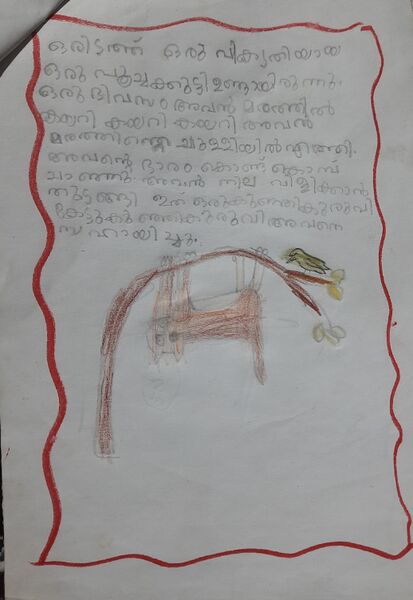 ഒരിടത്ത് ഒരു വികൃതിയായ
ഒരു പൂച്ചക്കുട്ടി ഉണ്ടായിരുന്നു.
ഒരു ദിവസം അവൻ മരത്തിൽ
കയറി കയറി കയറി അവൻ
മരത്തിന്റെ ചുള്ളിയിൽ എത്തി.
അവന്റെ ഭാരം കൊണ്ട് കൊമ്പ്
ചാഞ്ഞു. അവൻ നില വിളിക്കാൻ
തുടങ്ങി ഇത് ഒരു കുഞ്ഞികുരുവി
കേട്ടു കുഞ്ഞികുരുവി അവനെ
സഹായിച്ചു.